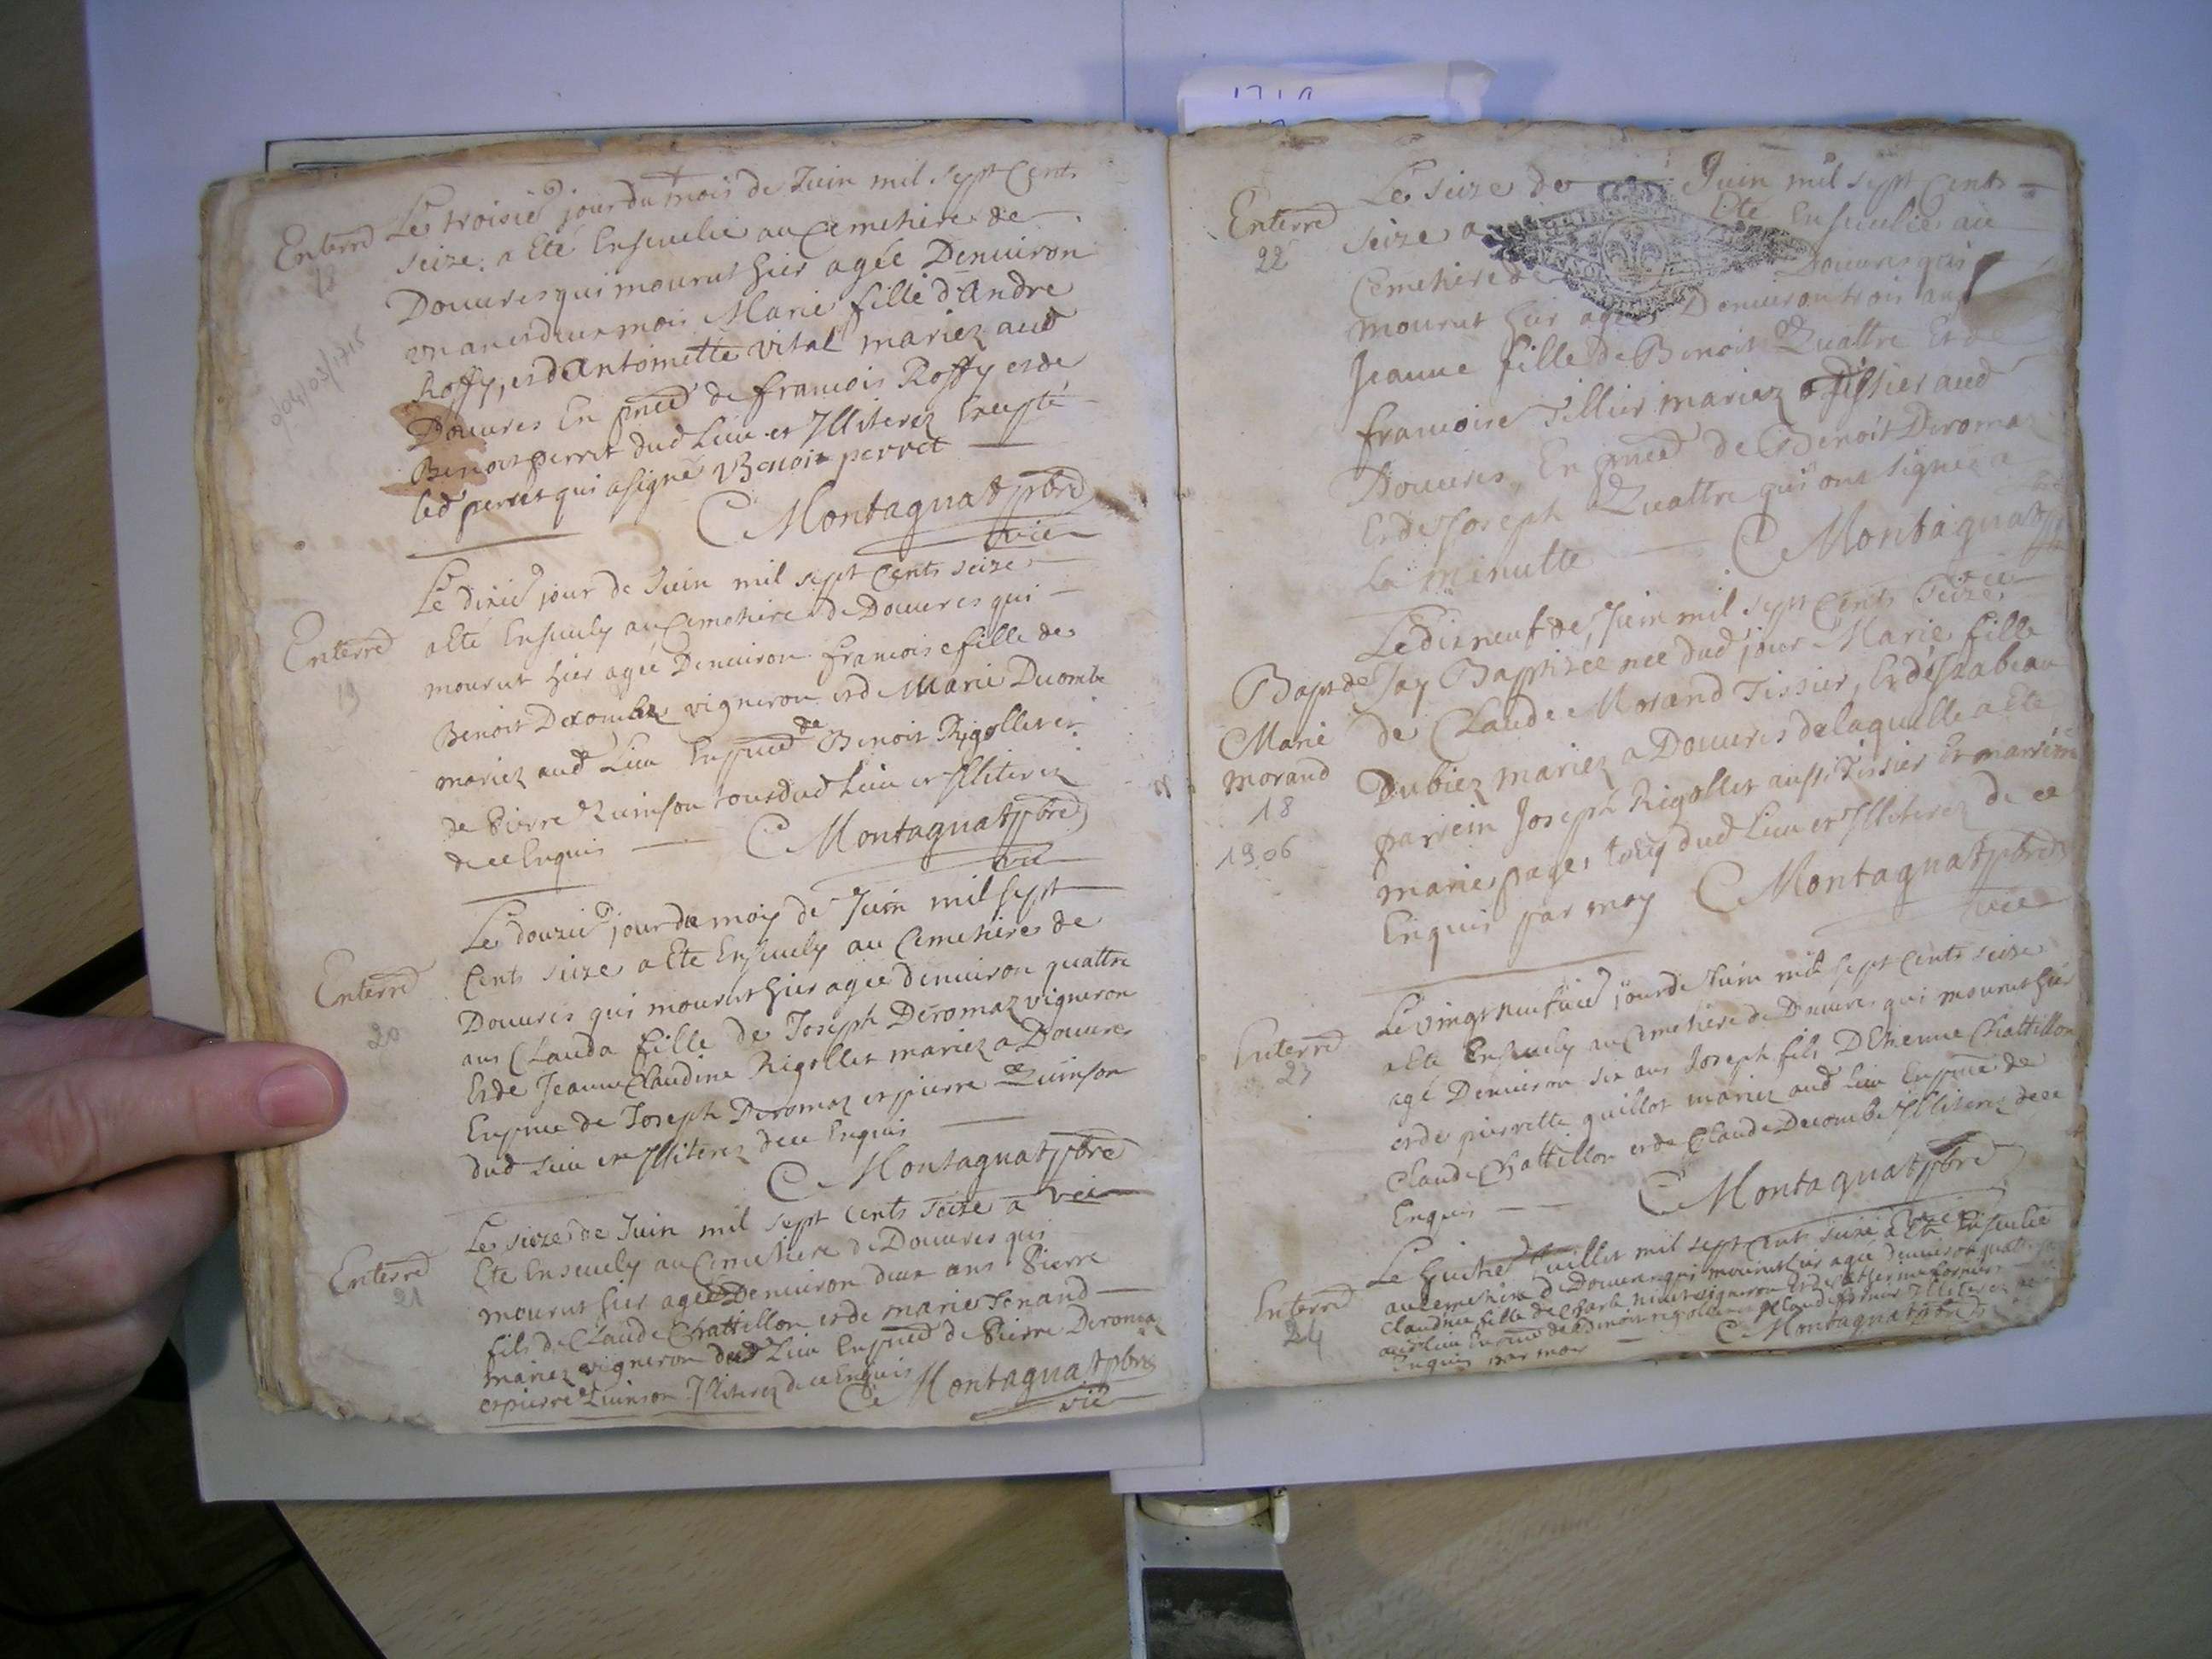 Enterré
18
904/03/1715
Le troisie jour du mois de Juin mil sept Cents
seize. a Eté Ensevelie au Cemethiere de
Douures qui mourut hier agée Denuiron
vn an et deux mois Marie fille d'Andre
Roffy, et d'Antoinette vital mariez aud
Douures En pnce de francois Roffy et de
Benoit perret dud Lieu et Illiterez Excepté
led perret qui a signé Benoit perret
C Montagnat pbre
vic
Enterré
19
Le dixie jour de Juin mil sept Cents seize
a Eté Ensevely au Cemethiere de Douures qui
mourut hier agée Denuiron francoise fille de
Benoit Decombe vigneron et de Marie Ducombe
mariez aud Lieu En pnce de Benoit Rigollet et
de Pierre Quinson tous dud Lieu et Illiterez
de ce Enquis
C Montagnat pbre
vic
Enterré
20
Le douzie jour du mois de Juin mil sept
Cents seize a Ete Ensevely au Cemethiere de
Douures qui mourut hier agée denuiron quattre
ans Clauda fille de Joseph Deromaz vigneron
Et de Jeanne Claudine Rigollet mariez a Douures
En pnce de Joseph Deromaz et pierre Quinson
dud Lieu et Illiterez de ce Enquis
C Montagnat pbre
vic
Enterré
21
Le sieze de Juin mil sept Cents seize a
Eté Ensevely au Cemethiere de Douures qui
mourut hier agée Denuiron deux ans Pierre
fils de Claude Chattillon et de marie Tenand
mariez vigneron dud Lieu En pnce de Pierre Deromaz
et pierre Quinson Illiterez de ce Enquis
C Montagnat pbre
vic
Enterré
22
Le seize de Juin mil sept Cents
seize a Eté Ensevelie au
Cemethiere de Douures qui
mourut hier agée Denuiron trois ans
Jeanne fille de Benoit Quattre Et de
francoise Tillier mariez Tissier aud
Douures, En pnce de Benoit Deromaz
Et de Joseph Quattre qui ont signez a
La minutte
C Montagnat
Bapt de
Marie
morand
18
1906
Le dixneuf de Juin mil sept Cents Seize
Jay Baptizée née dud jour Marie fille
de Claude Morand Tissier, Et d'Isabeau
Dubiez mariez a Douures de laquelle a Ete
parrein Joseph Rigollet aussi Tissier Et marreine
marie pages tous dud Lieu et Illiterez de ce
Enquis par moy C Montagnat pbre
vic
Enterré
23
Le vingt neufuie jour de Juin mil sept Cents seize
a Ete Ensevely au Cemethiere de Douures qui mourut hier
agé Denuiron six ans Joseph fils D'Etienne Chattillon
et de pierrette guillot mariez aud Lieu En pnce de
Claude Chattillon et de Claude Decombe Illiterez de ce
Enquis
C Montagnat pbre
vic
Enterré
24
Le huitie Juillet mil sept Cents seize a Ete Ensevelie
au Cemethiere de Douures qui mourut hier agée denuiron quattre
Claudine fille de Charle vigneron Et de Catherine fornier
aud Lieu En pnce de Benoit rigollet et Claude fornier Illiterez de ce
Enquis par moy
C Montagnat pbre